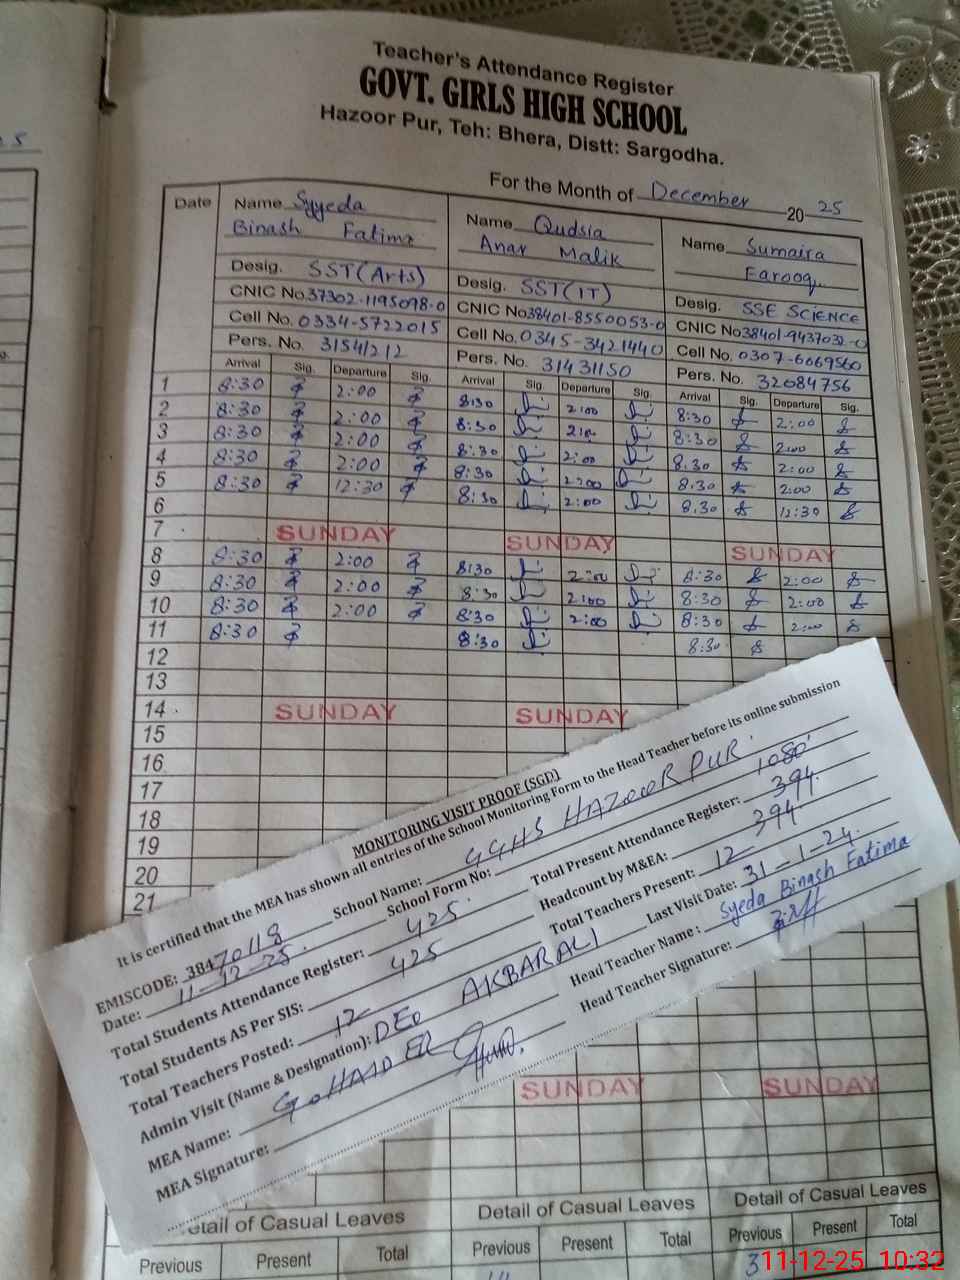 Teacher's Attendance Register
GOVT. GIRLS HIGH SCHOOL
Hazoor Pur, Teh: Bhera, Distt: Sargodha.
For the Month of December 2025
Date
Name Syyeda
Binash Fatima
Desig. SST(Arts)
CNIC No.37302-1195098-0
Cell No. 0334-5722015
Pers. No. 31541212
Arrival Sig. Departure Sig.
Name Qudsia
Anar Malik
Desig. SST(IT)
CNIC No.38401-8550053-0
Cell No. 0345-3421440
Pers. No. 31431150
Arrival Sig. Departure Sig.
Name Sumaira
Farooq
Desig. SSE SCIENCE
CNIC No.38401-9437032-0
Cell No. 0307-6069560
Pers. No. 32084756
Arrival Sig. Departure Sig.
1 8:30 2:00 8:30 2:00 8:30 2:00
2 8:30 2:00 8:30 2:00 8:30 2:00
3 8:30 2:00 8:30 2:00 8:30 2:00
4 8:30 2:00 8:30 2:00 8:30 2:00
5 8:30 12:30 8:30 2:00 8:30 12:30
6
7 SUNDAY SUNDAY SUNDAY
8 8:30 2:00 8:30 2:00 8:30 2:00
9 8:30 2:00 8:30 2:00 8:30 2:00
10 8:30 2:00 8:30 2:00 8:30 2:00
11 8:30 8:30 8:30
12
13
14 SUNDAY SUNDAY
15
16
17
18
19
20
21
MONITORING VISIT PROOF (SGD)
It is certified that the MEA has shown all entries of the School Monitoring Form to the Head Teacher before its online submission
EMISCODE: 38470118
School Name: GGHS HAZOOR PUR
Date: 11-12-25
School Form No: 1080
Total Students Attendance Register: 425
Total Present Attendance Register: 394
Total Students AS Per SIS: 425
Headcount by M&EA: 394
Total Teachers Posted: 12
Total Teachers Present: 12
Admin Visit (Name & Designation): DEO AKBAR ALI
Last Visit Date: 31-1-24
MEA Name:
Head Teacher Name: Syeda Binash Fatima
MEA Signature:
Head Teacher Signature:
SUNDAY SUNDAY
etail of Casual Leaves
Detail of Casual Leaves
Detail of Casual Leaves
Previous Present Total
Previous Present Total
Present Total
3
11-12-25 10:32